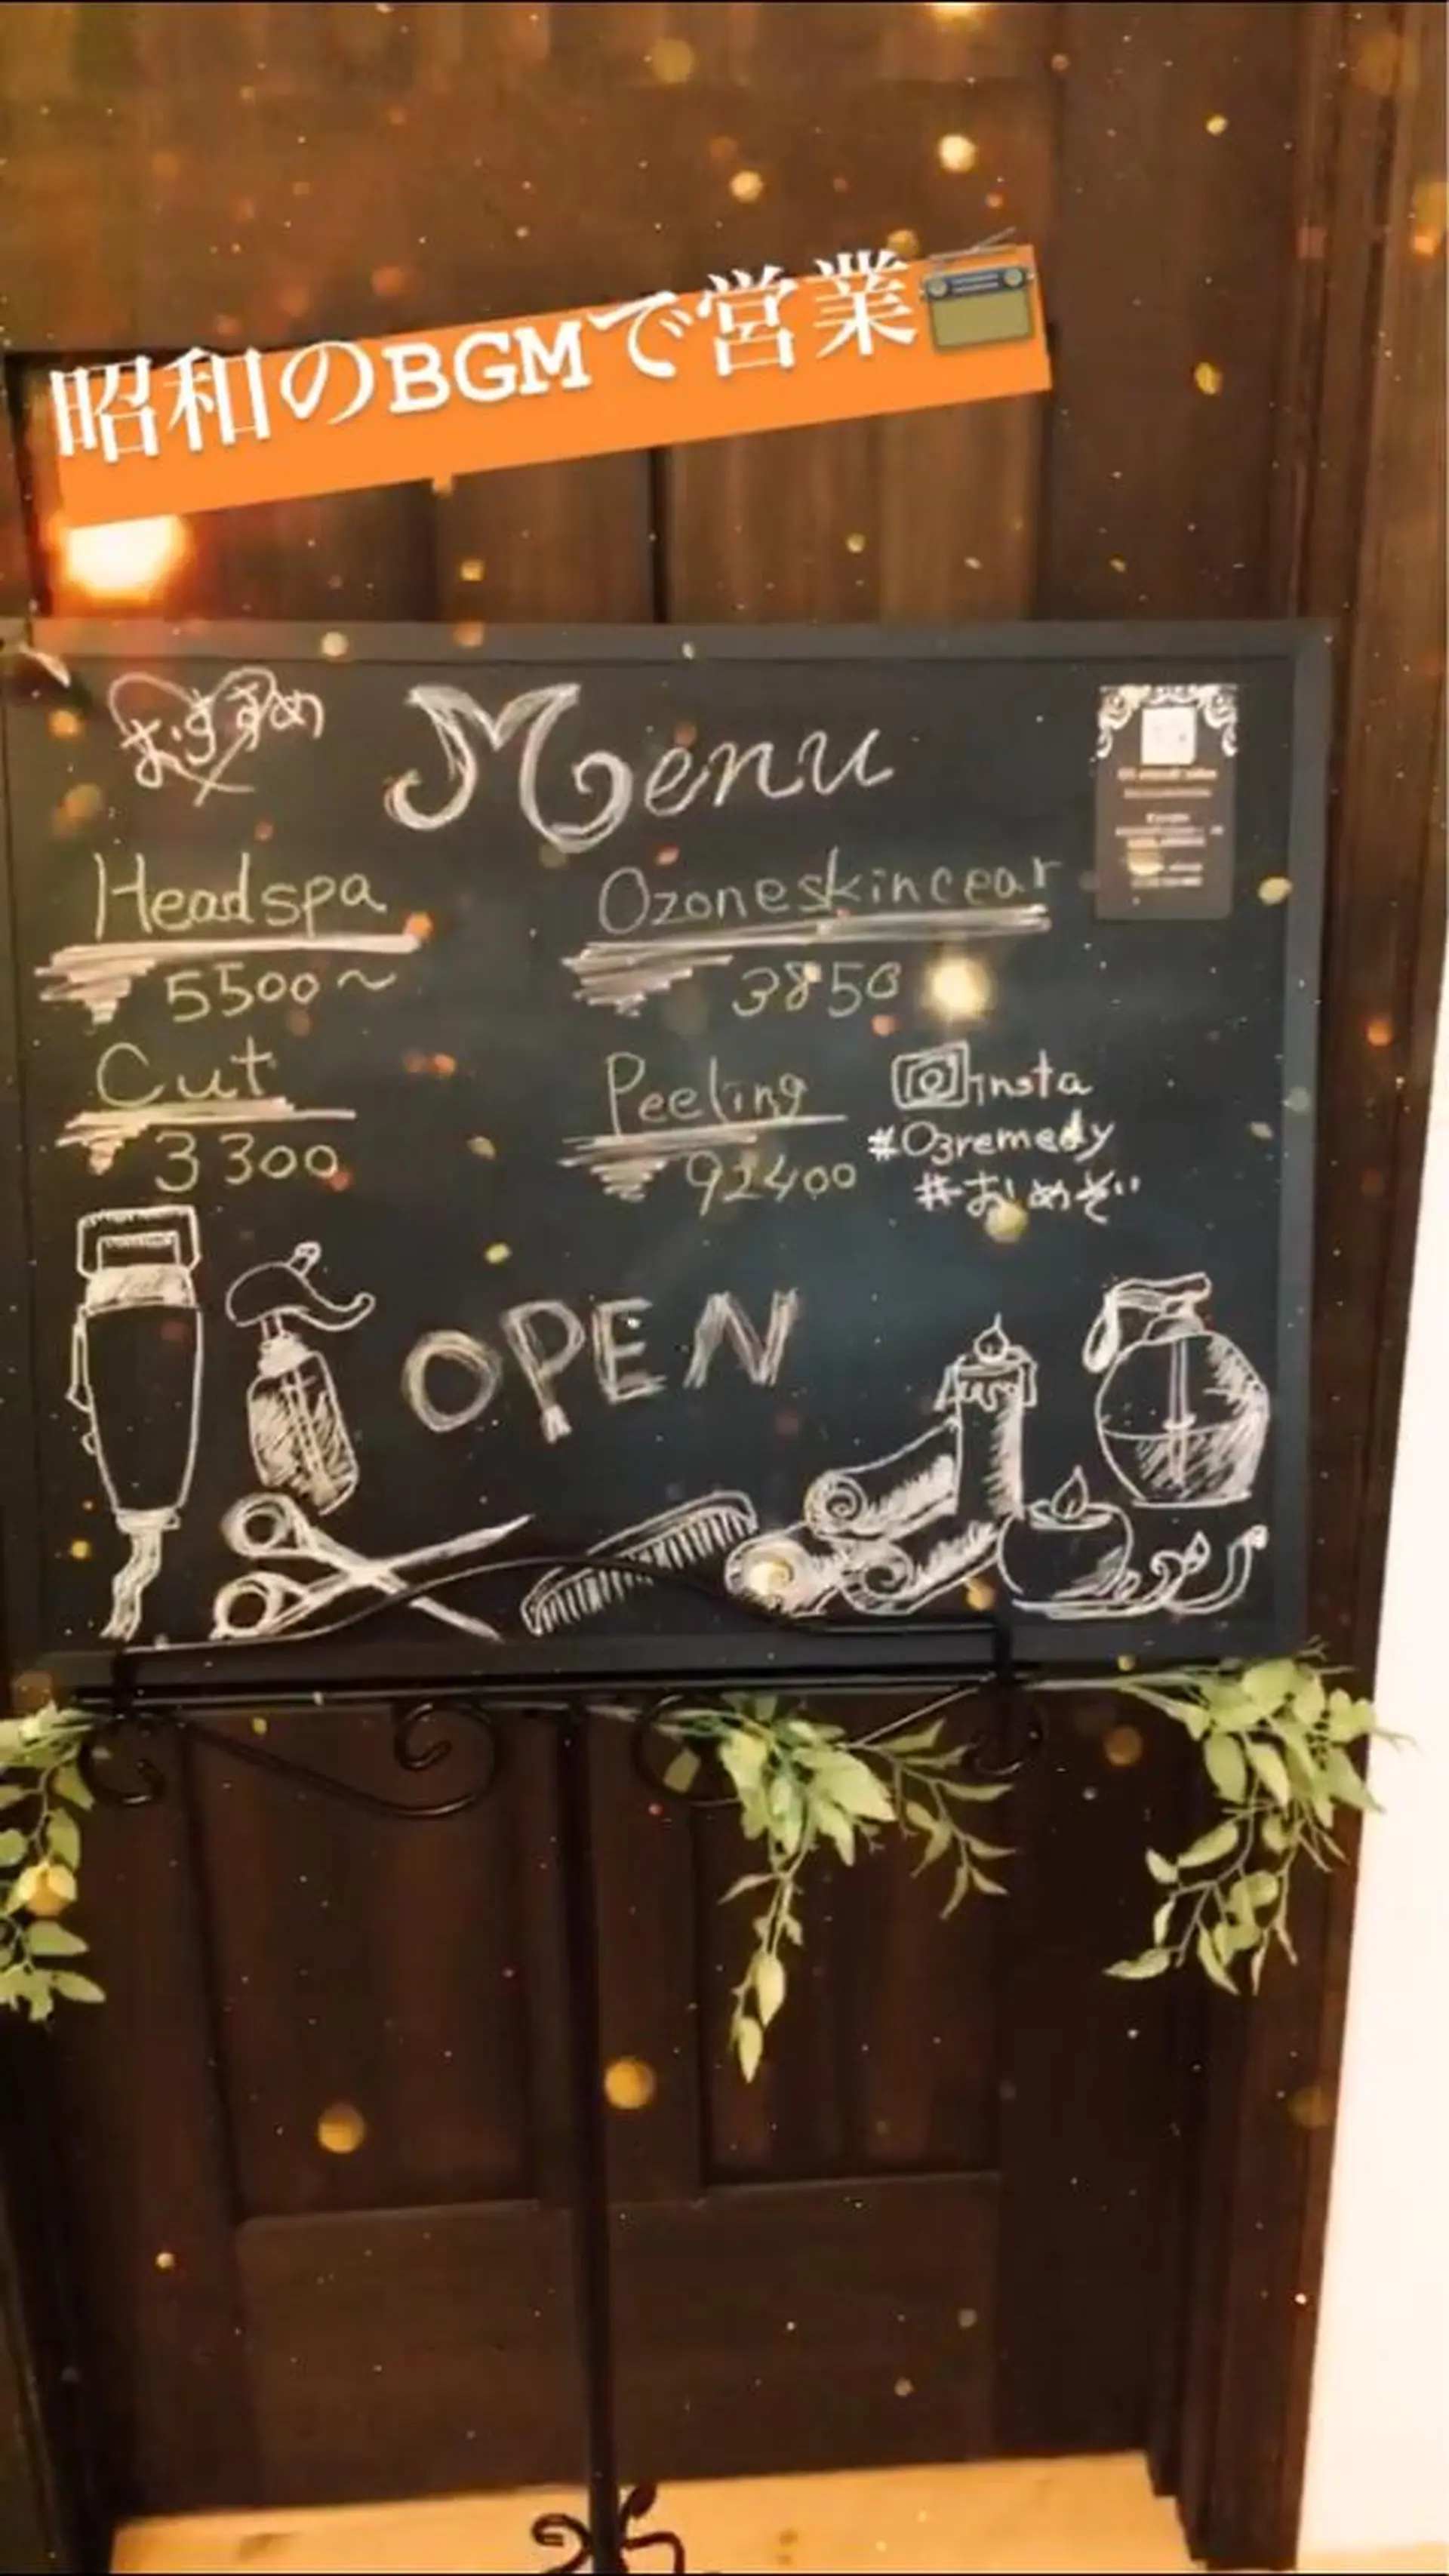 昭和のBGMで営業
おすすめ
Menu
Headspa
5500〜
Ozoneskincear
3850
Cut
3300
Peeling
92400
insta
#O3remedy
OPEN